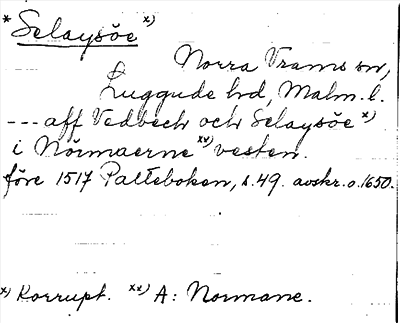 * Selaysöe x)
Norra Vrams sn,
Luggude hd, Malm. l.
--- aff Vedbech och Selaysöe x)
i Nörmaerne xx) vesten.
före 1517 Palteboken, s. 49. avskr. o. 1650.
x) Korrupt. xx) A: Normane.